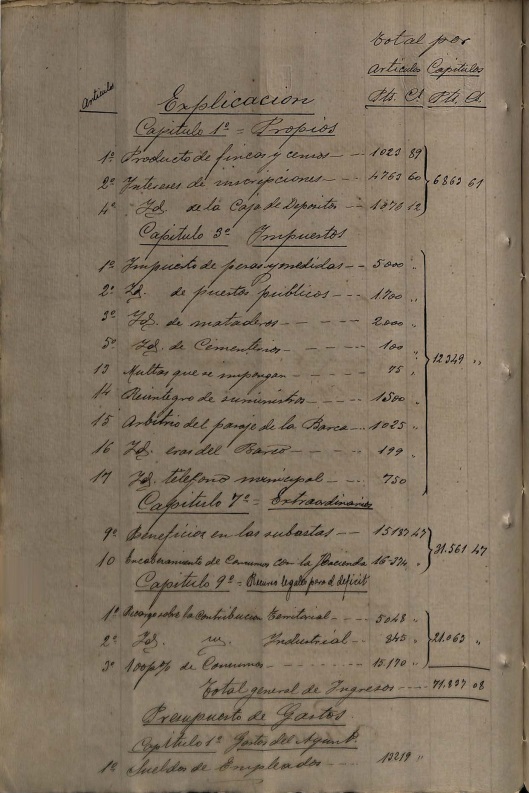 Total por
Artículos Capítulos
Artículos Explicacion Pts. Cs. Pts. Cs.
Capítulo 1º = Propios
1º Producto de fincas y censos 1023 89
2º Intereses de inscripciones 4763 60 6863 61
4º Id. de la Caja de Depositos 1076 12
Capítulo 3º Impuestos
1º Impuesto de pesas y medidas 5000 "
2º Id. de puestos públicos 1700 "
3º Id. de mataderos 2000 "
5º Id. de Cementerios 100 "
13 Multas que se impongan 75 " 12349 "
14 Reintegro de suministros 1500
15 Arbitrio del pasaje de la Barca 1025 "
16 Id. eras del Barco 199
17 Id. teléfono municipal 750
Capítulo 7º = Extraordinarios
9º Beneficios en las subastas 15187 47
10 Encabezamiento de Consumos con la Hacienda 16374 " 31.561 47
Capítulo 9º = Recursos legales para el déficit
1º Recargo sobre la contribucion Territorial 5048 "
2º Id. Industrial 845 " 21.063 "
3º 100 p% de Consumos 15.170 "
Total general de Ingresos 71.837 08
Presupuesto de Gastos
Capítulo 1º Gastos del Ayunt.
1º Sueldos de Empleados 13219 "